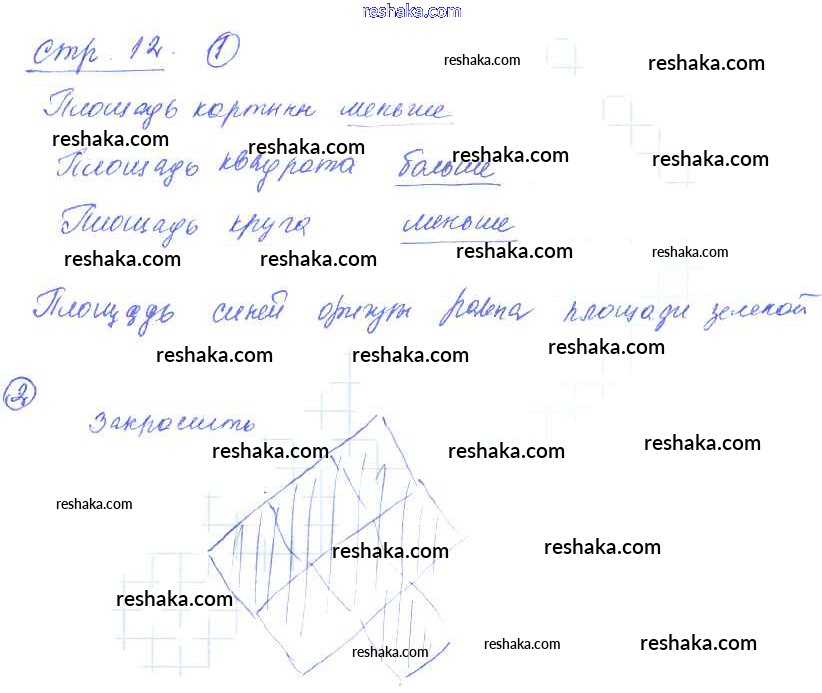 reshaka.com
стр. 12. 1
reshaka.com reshaka.com
Площадь картины меньше
reshaka.com reshaka.com reshaka.com reshaka.com
Площадь квадрата больше
Площадь круга меньше
reshaka.com reshaka.com reshaka.com reshaka.com
Площадь синей фигуры равна площади зеленой
reshaka.com reshaka.com reshaka.com
2
Закрасить
reshaka.com reshaka.com reshaka.com
reshaka.com
reshaka.com reshaka.com
reshaka.com
reshaka.com reshaka.com reshaka.com